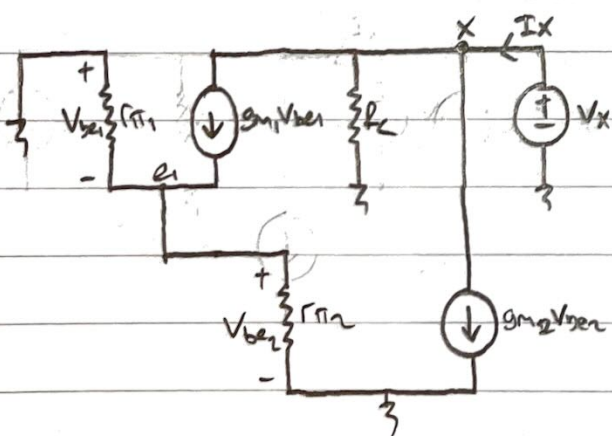 X Ix
+
Vbe1 rπ1 gm1Vbe1 Rc + Vx
-
e1
+
Vbe2 rπ2 gm2Vbe2
-